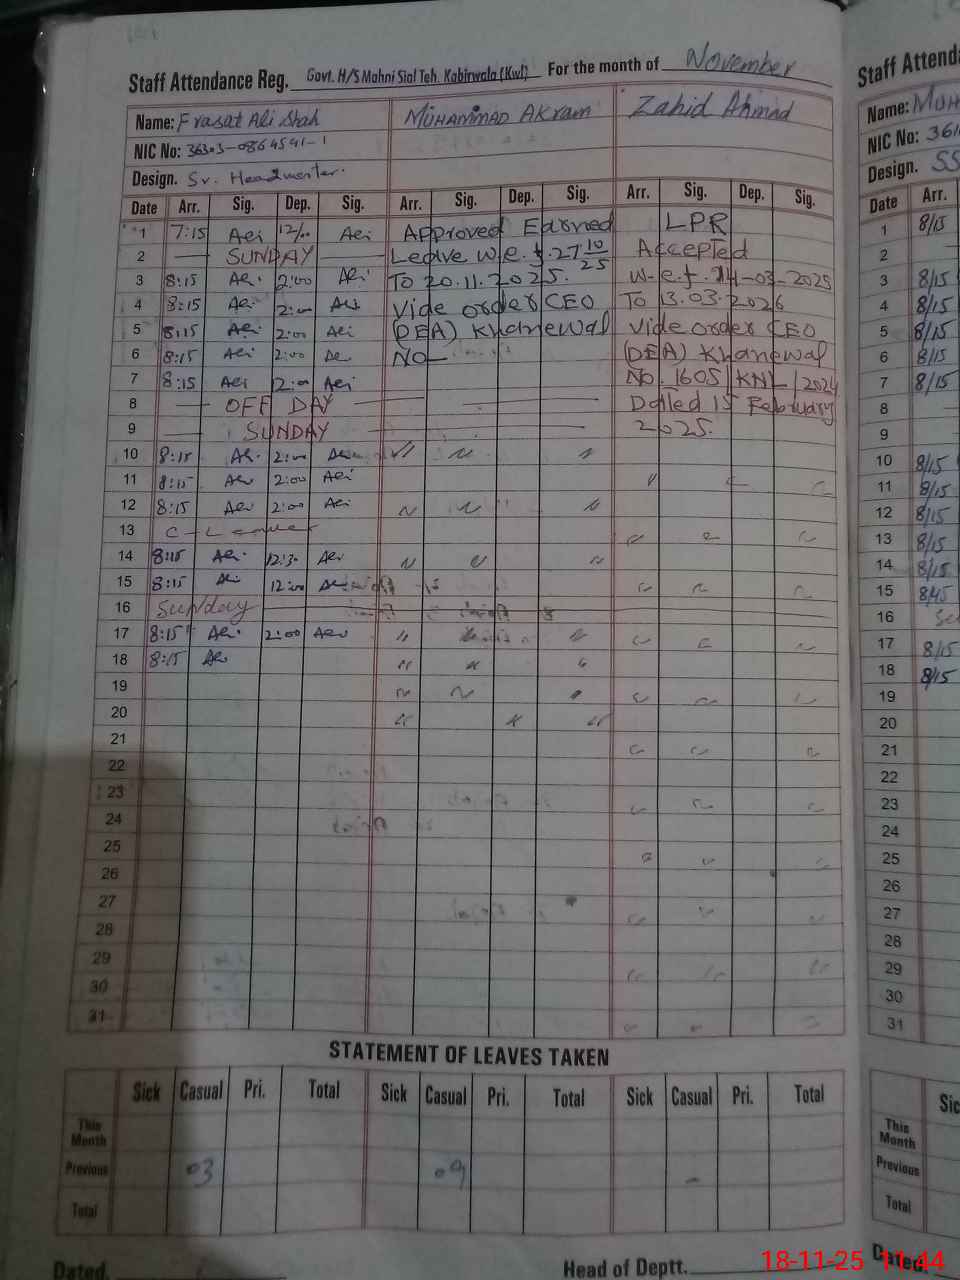 Staff Attendance Reg. Govt. H/S Mahni Sial Teh. Kabirwala (Kwl) For the month of November
Name: Frasat Ali Shah MUHAMMAD AKRAM Zahid Ahmad
NIC No: 36303-0864591-1
Design. Sr. Headmaster.
Date Arr. Sig. Dep. Sig. Arr. Sig. Dep. Sig. Arr. Sig. Dep. Sig.
1 7:15 12/00 Approved Earned LPR
2 SUNDAY Leave w.e.f. 27 10/25 Accepted
3 8:15 2:00 To 20.11.2025. w.e.f. 14-03-2025
4 8:15 2:00 Vide order CEO To 13.03.2026
5 8:15 2:00 (DEA) Khanewal Vide order CEO
6 8:15 2:00 NO— (DEA) Khanewal
7 8:15 2:00 No. 1605/KNL/2024
8 OFF DAY Dated 15 February
9 SUNDAY 2025.
10 8:15 2:00 〃 〃 〃
11 8:15 2:00
12 8:15 2:00 〃 〃 〃
13 C-Leave
14 8:15 12:30 〃 〃 〃
15 8:15 12:00
16 Sunday
17 8:15 2:00 〃 〃
18 8:15 〃 〃 〃
19 〃 〃
20 〃 〃 〃
21
22
23
24
25
26
27
28
29
30
31
STATEMENT OF LEAVES TAKEN
Sick Casual Pri. Total Sick Casual Pri. Total Sick Casual Pri. Total
This Month
Previous 03 09 -
Total
Dated. Head of Deptt.
Staff Attend
Name:
NIC No: 361
Design. SS
Date Arr.
1 8/15
2
3 8/15
4 8/15
5 8/15
6 8/15
7 8/15
8
9
10 8/15
11 8/15
12 8/15
13 8/15
14 8/15
15 8/45
16
17 8/15
18 8/15
19
20
21
22
23
24
25
26
27
28
29
30
31
Sic
This Month
Previous
Total
Dated.
18-11-25 11:44